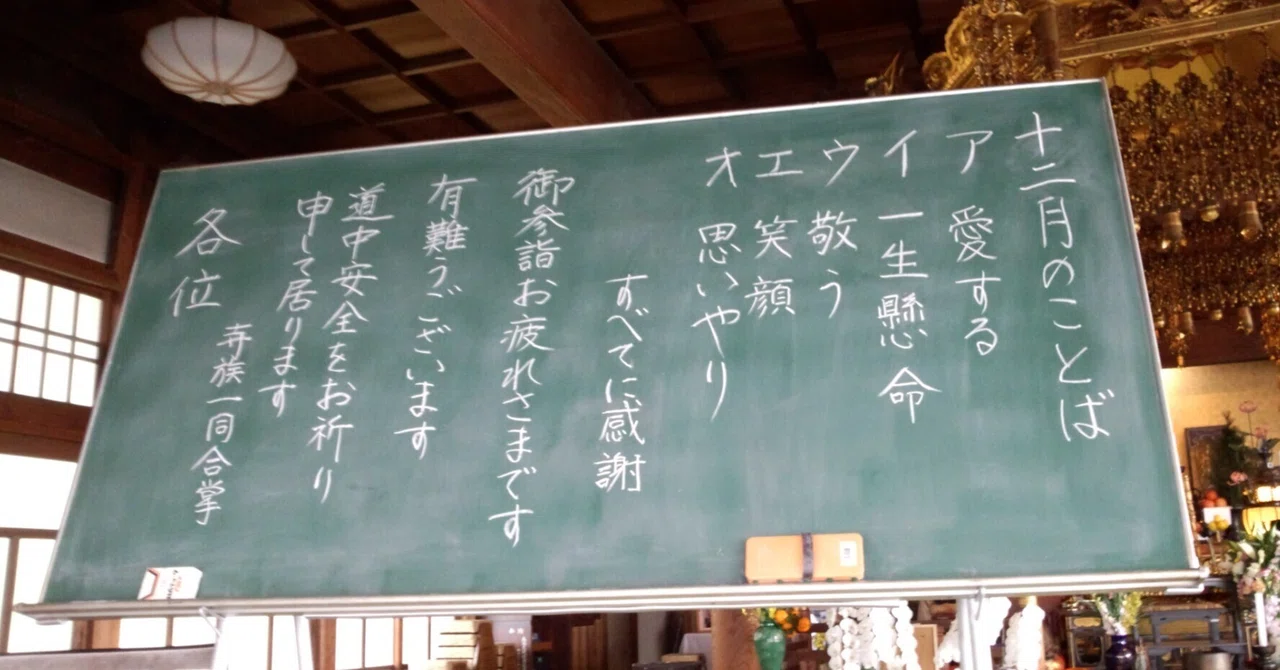 十二月のことば
ア 愛する
イ 一生懸命
ウ 敬う
エ 笑顔
オ 思いやり
すべてに感謝
御参詣お疲れさまです
有難うございます
道中安全をお祈り
申して居ります
寺族一同合掌
各位